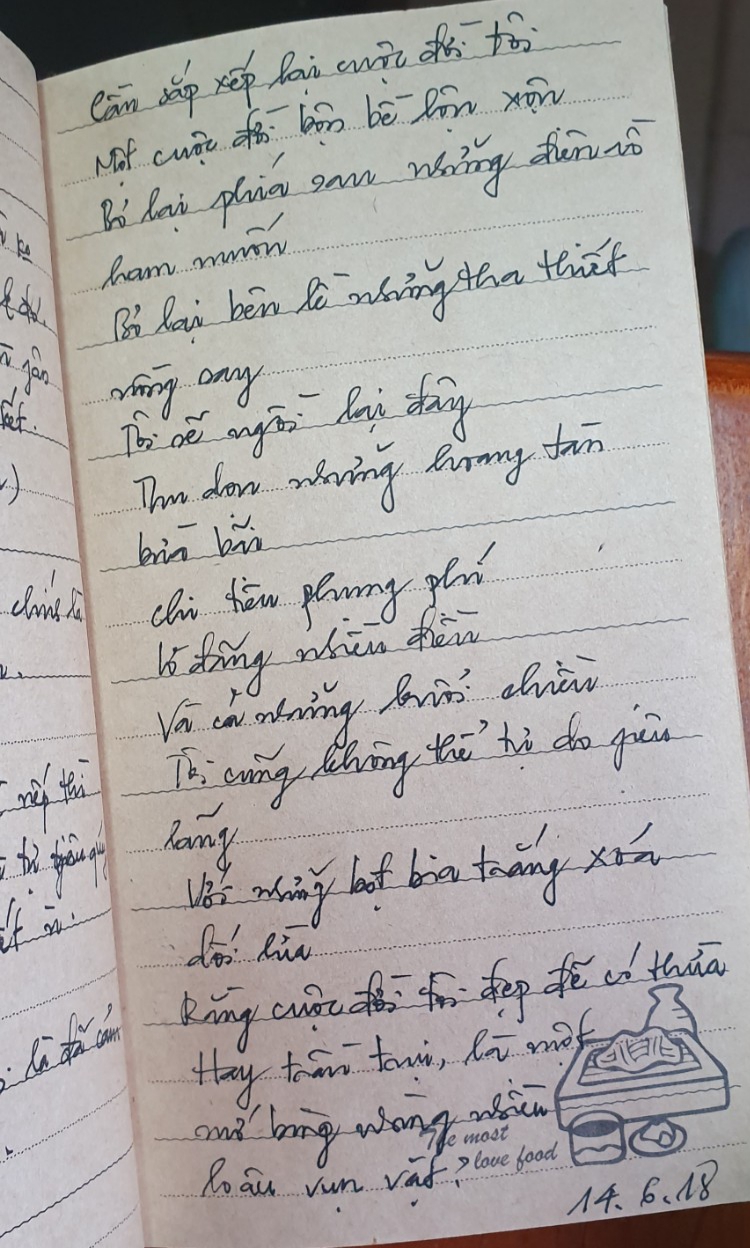 Cần sắp xếp lại cuộc đời tôi
Một cuộc đời bộn bề lộn xộn
Bỏ lại phía sau những điên rồ
ham muốn
Bỏ lại bên lề những tha thiết
nồng say
Tôi sẽ ngồi lại đây
Thu dọn những hoang tàn
bừa bãi
chi tiêu phung phí
lơ đãng nhiều điều
Và cả những buổi chiều
Tôi cũng không thể tự do giấu
lòng
Với những bọt bia trắng xóa
dối lừa
Rằng cuộc đời tôi đẹp đẽ có thừa
Hay trần trụi, là một
mớ bòng bong nhiều
loâu vụn vặt?
The most
love food
14.6.18
ko
gần
chính là
nếp thì
là đã cảm